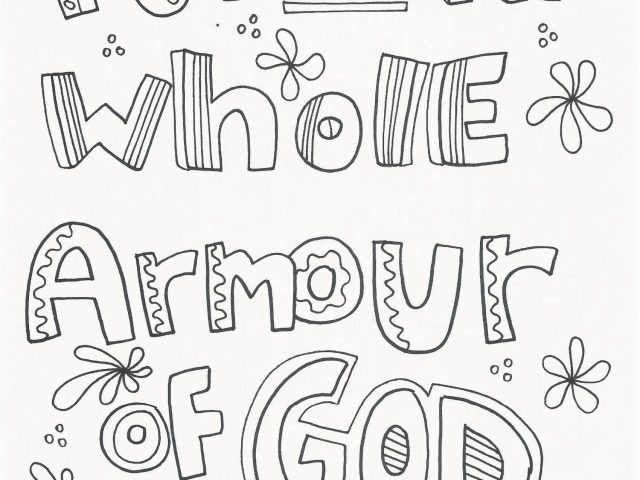 whole
Armour
of GOD